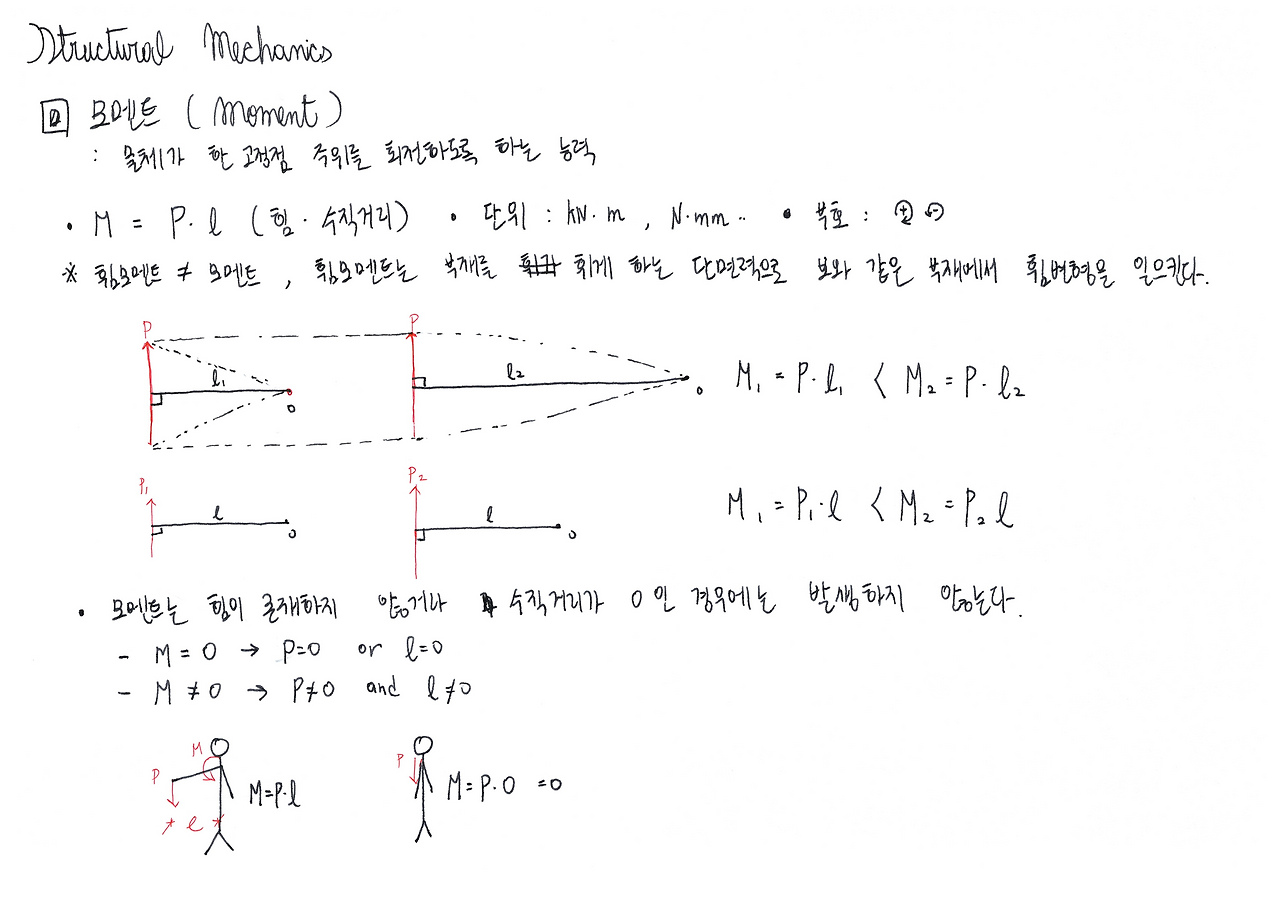 Structural Mechanics
모멘트 (Moment)
: 물체가 한 고정점 주위를 회전하도록 하는 능력
• M = P·l (힘·수직거리) • 단위 : kN·m , N·mm ·· • 부호 : ⊕ ⊖
※ 휨모멘트 ≠ 모멘트 , 휨모멘트는 부재를 휘게 하는 단면력으로 보와 같은 부재에서 휨변형을 일으킨다.
P
l₁
o
P
l₂
o
M₁ = P·l₁ < M₂ = P·l₂
P₁
l
o
P₂
l
o
M₁ = P₁·l < M₂ = P₂ l
• 모멘트는 힘이 존재하지 않거나 수직거리가 0인 경우에는 발생하지 않는다.
- M = 0 → P=0 or l=0
- M ≠ 0 → P≠0 and l≠0
M
P
l
M=P·l
P
M=P·0 =0